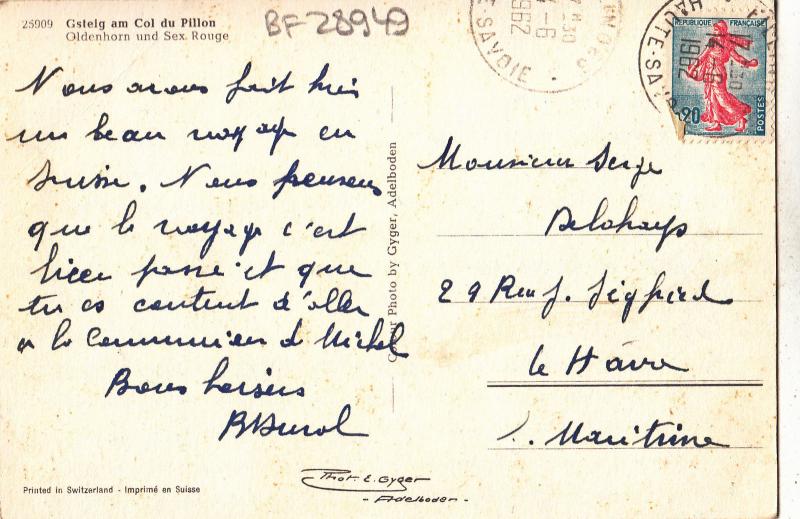 25909 Gsteig am Col du Pillon
Oldenhorn und Sex Rouge
BF 28949
HAUTE-SAVOIE
1962
REPUBLIQUE FRANÇAISE
0,20
POSTES
Nous avons fait hier
un beau voyage en
Suisse. Nous pensons
que le voyage c'est
bien passé et que
tu es content d'aller
a la Communion d Michel
Bons baisers
Photo by Gyger, Adelboden
Monsieur Serge
Delahays
29 Rue J. Siegfried
le Havre
S. Maritime
Phot. E. Gyger
- Adelboden -
Printed in Switzerland - Imprimé en Suisse